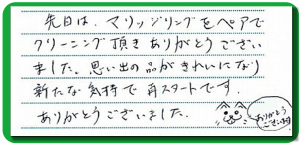 先日は、マリッジリングをペアで
クリーニング頂きありがとうござい
ました。思い出の品がきれいになり
新たな気持で再スタートです。
ありがとうございました。
ありがとう
ございます